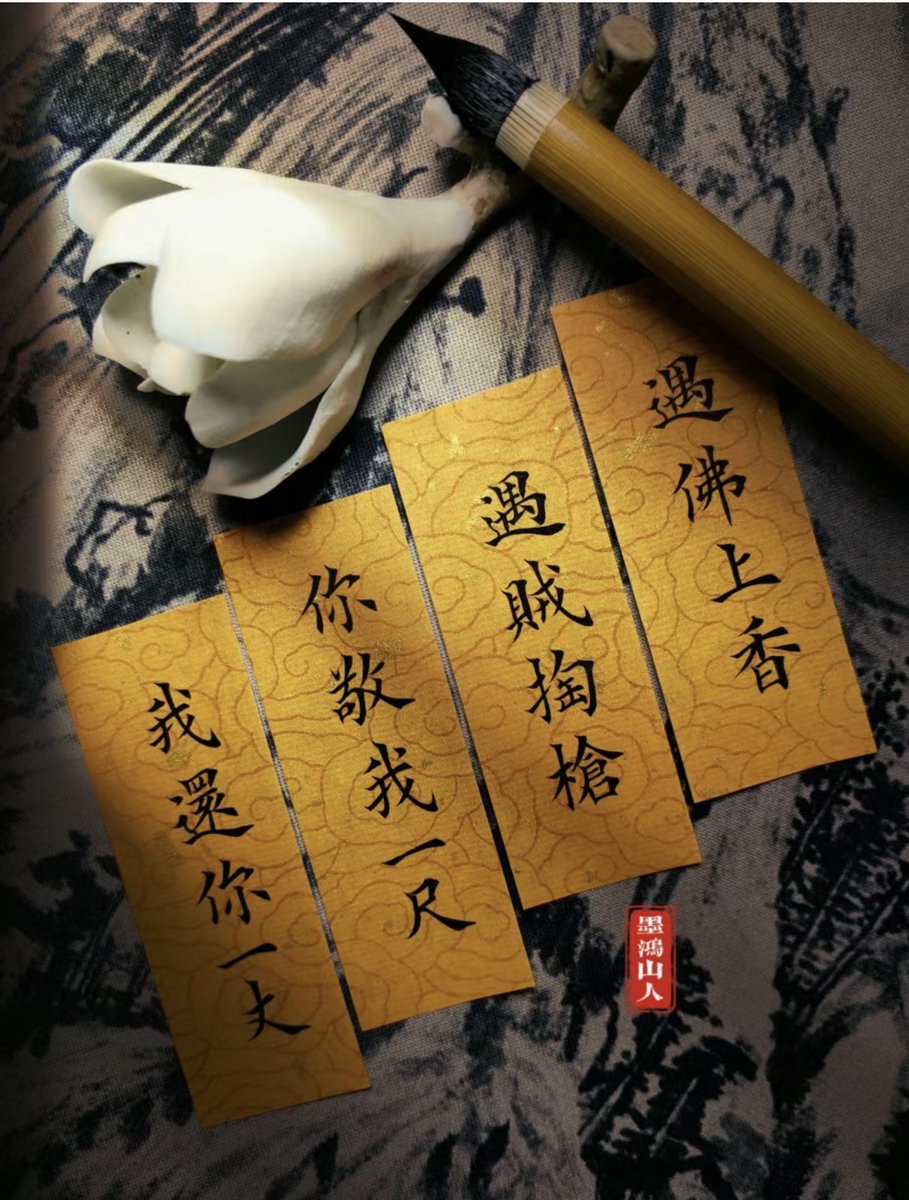 遇佛上香
遇賊掏槍
你敬我一尺
我還你一丈
墨鴻山人